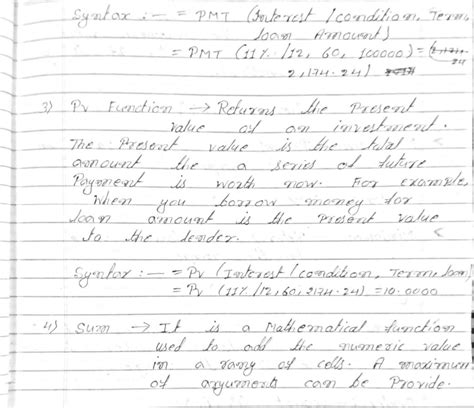 Syntax :- = PMT (Interest / condition, Term,
loan Amount)
= PMT (11% /12, 60, 100000) = (
2,174.24)
3) Pv Function → Returns the Present
value of an investment.
The Present value is the total
amount the a series of future
Payment is worth now. For example,
When you borrow money for
loan amount is the Present value
to the lender.
Syntax :- = Pv (Interest / condition, Term, loan)
= Pv (11% /12, 60, 2174.24) = 10.0000
4) Sum → It is a Mathematical function
used to add the numeric value
in a rang of cells. A maximum
of arguments can be Provide.